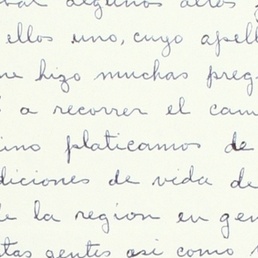 algunos años
ellos uno, cuyo apell
hizo muchas preg
a recorrer el cam
ino platicamos de
diciones de vida de
de la region en gen
tas gentes asi como